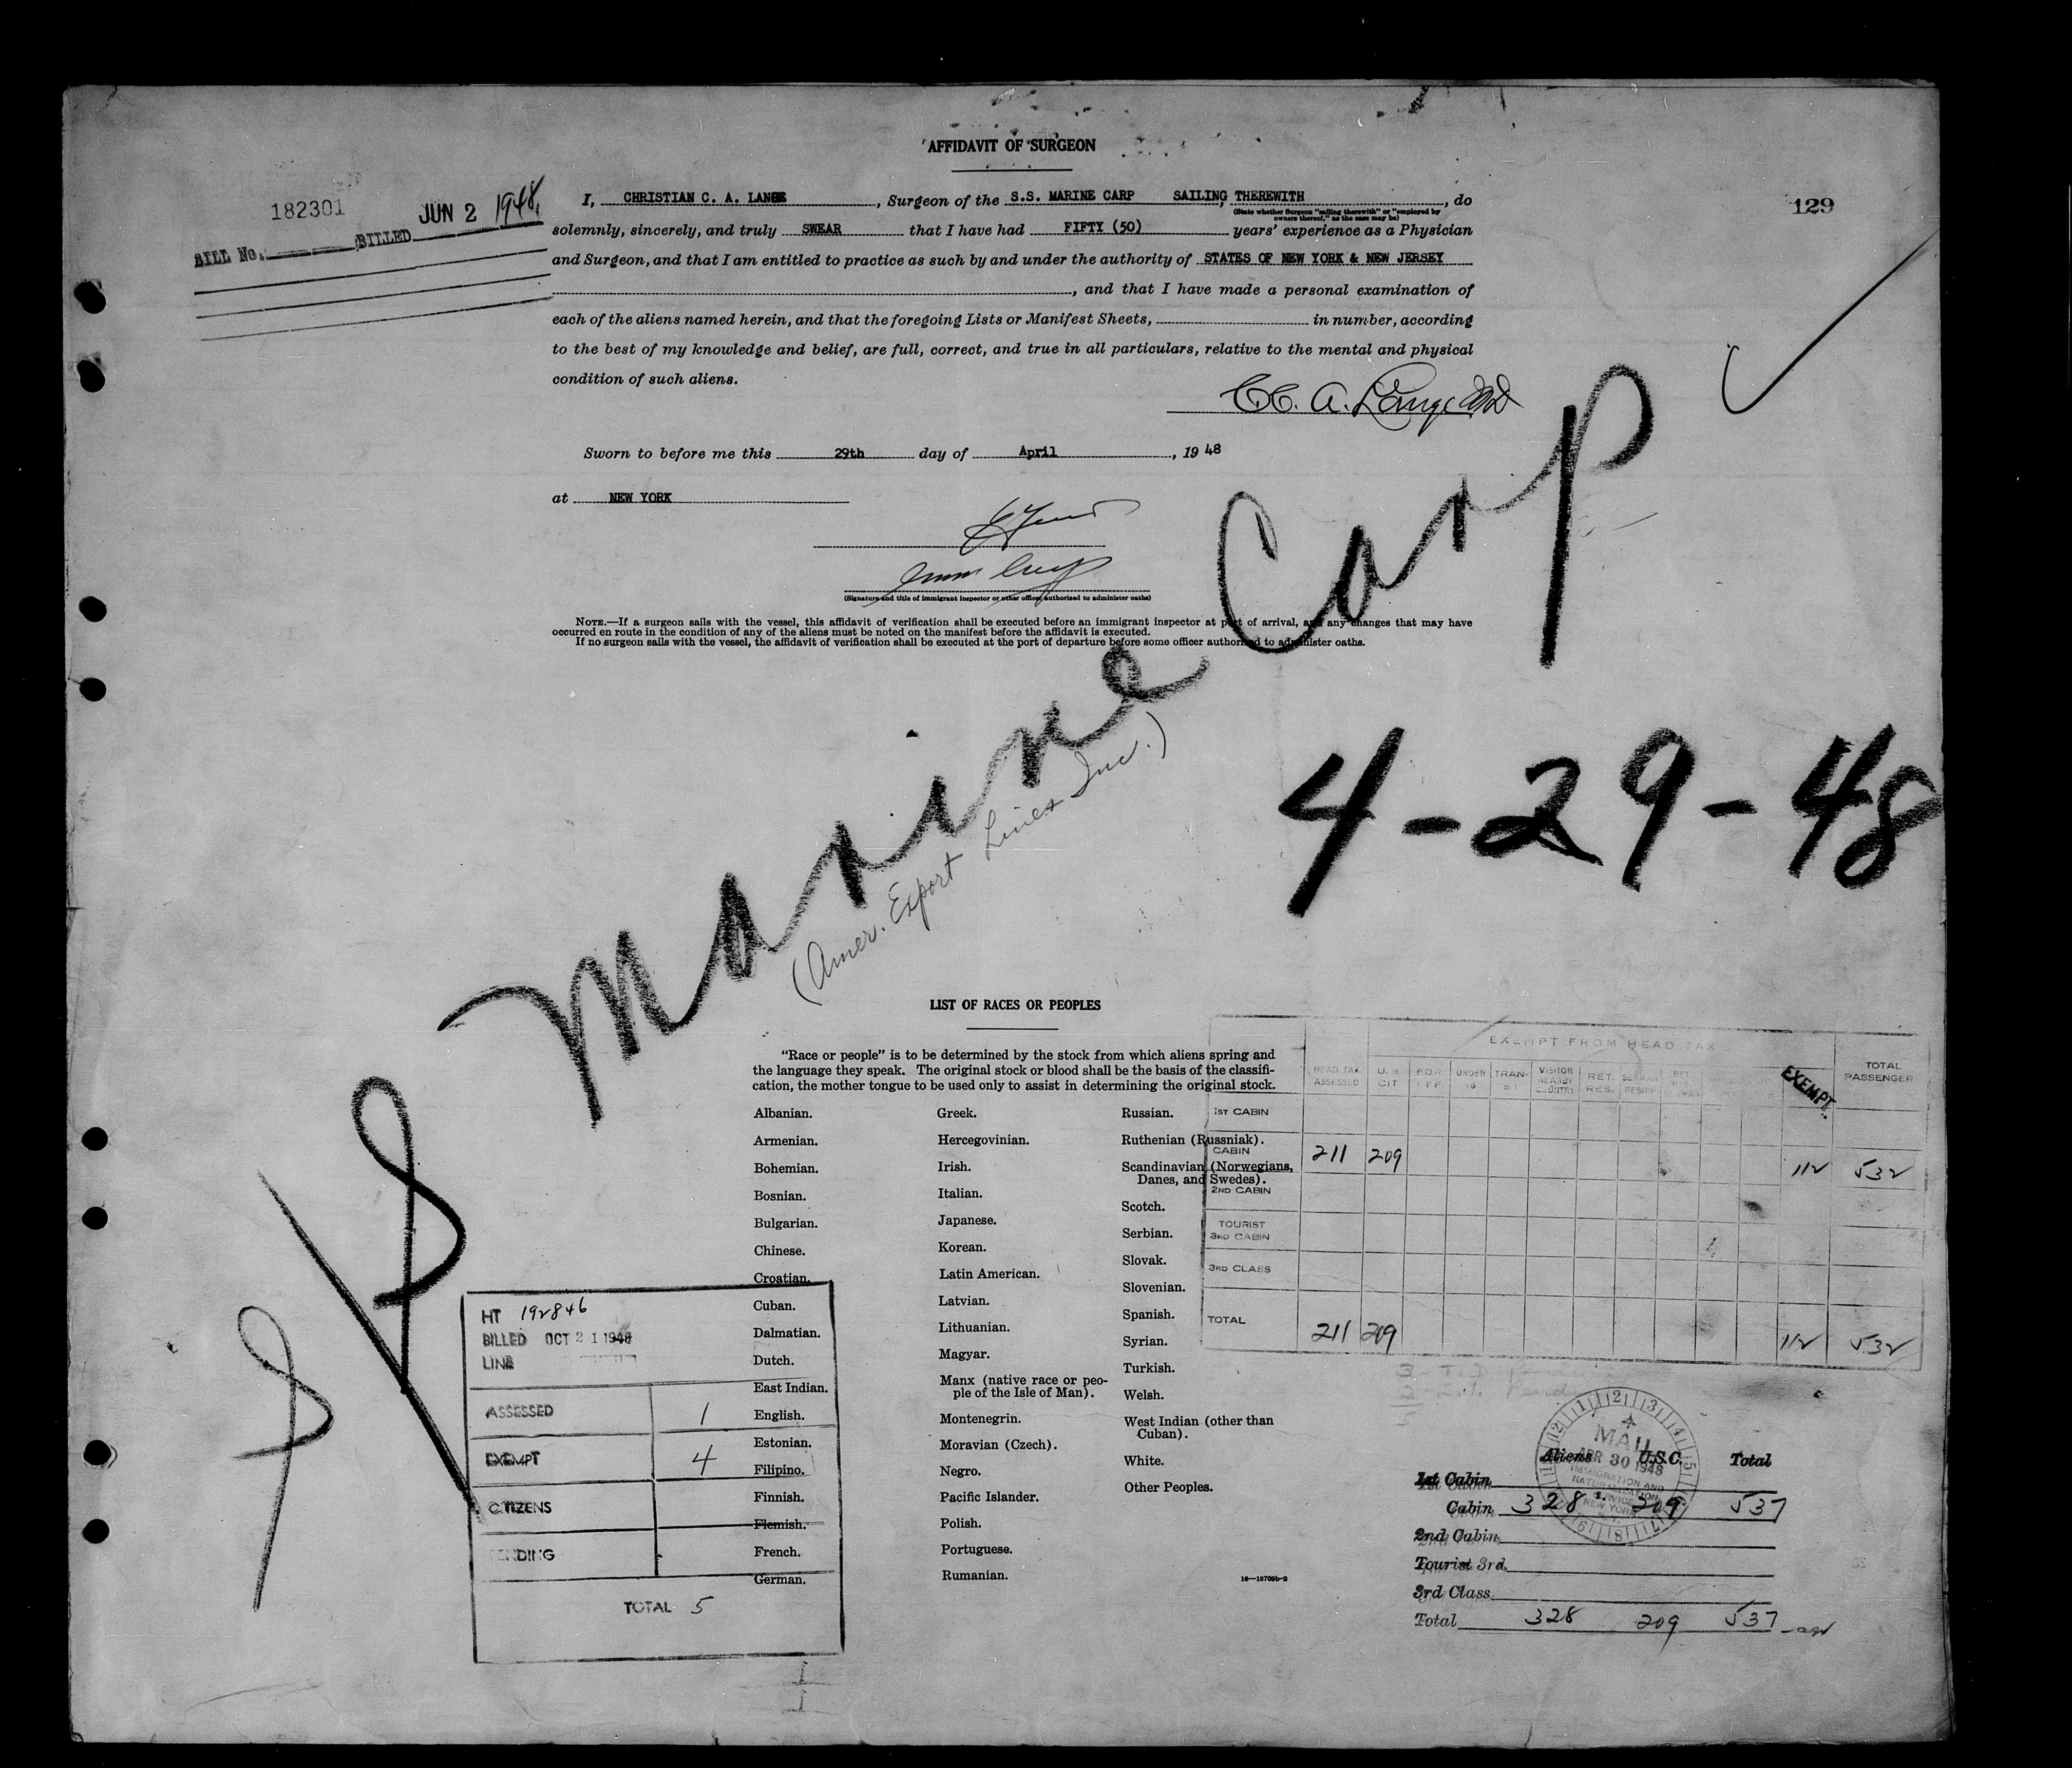 AFFIDAVIT OF SURGEON
182301
JUN 2 1948
BILL No. BILLED
129
I, CHRISTIAN C. A. LANGE, Surgeon of the S.S. MARINE CARP SAILING THEREWITH, do
(State whether Surgeon "sailing therewith" or "employed by
owners thereof," as the case may be)
solemnly, sincerely, and truly SWEAR that I have had FIFTY (50) years' experience as a Physician
and Surgeon, and that I am entitled to practice as such by and under the authority of STATES OF NEW YORK & NEW JERSEY
, and that I have made a personal examination of
each of the aliens named herein, and that the foregoing Lists or Manifest Sheets, in number, according
to the best of my knowledge and belief, are full, correct, and true in all particulars, relative to the mental and physical
condition of such aliens.
C.C. A. Lange MD
Sworn to before me this 29th day of April, 1948
at NEW YORK
(Signature and title of immigrant inspector or other officer authorized to administer oaths)
NOTE.—If a surgeon sails with the vessel, this affidavit of verification shall be executed before an immigrant inspector at port of arrival, and any changes that may have
occurred en route in the condition of any of the aliens must be noted on the manifest before the affidavit is executed.
If no surgeon sails with the vessel, the affidavit of verification shall be executed at the port of departure before some officer authorized to administer oaths.
S/S Marine Carp
(Amer. Export Lines Inc.)
4-29-48
LIST OF RACES OR PEOPLES
"Race or people" is to be determined by the stock from which aliens spring and
the language they speak. The original stock or blood shall be the basis of the classifi-
cation, the mother tongue to be used only to assist in determining the original stock.
Albanian.
Armenian.
Bohemian.
Bosnian.
Bulgarian.
Chinese.
Croatian.
Cuban.
Dalmatian.
Dutch.
East Indian.
English.
Estonian.
Filipino.
Finnish.
Flemish.
French.
German.
Greek.
Hercegovinian.
Irish.
Italian.
Japanese.
Korean.
Latin American.
Latvian.
Lithuanian.
Magyar.
Manx (native race or peo-
ple of the Isle of Man).
Montenegrin.
Moravian (Czech).
Negro.
Pacific Islander.
Polish.
Portuguese.
Rumanian.
Russian.
Ruthenian (Russniak).
Scandinavian (Norwegians,
Danes, and Swedes).
Scotch.
Serbian.
Slovak.
Slovenian.
Spanish.
Syrian.
Turkish.
Welsh.
West Indian (other than
Cuban).
White.
Other Peoples.
16—18709b-2
HT 192846
BILLED OCT 21 1948
LINE
ASSESSED 1
EXEMPT 4
CITIZENS
PENDING
TOTAL 5
EXEMPT FROM HEAD TAX
HEAD TAX ASSESSED U.S. CIT UNDER 16 TRANSIT VISITOR NEARBY COUNTRY RET. RES. EXEMPT. TOTAL PASSENGER
1ST CABIN
CABIN 211 209 112 532
2ND CABIN
TOURIST
3RD CABIN
3RD CLASS
TOTAL 211 209 112 532
MAIL
APR 30 1948
IMMIGRATION AND
NATURALIZATION
SERVICE
NEW YORK
Aliens U.S.C. Total
1st Cabin
Cabin 328 209 537
2nd Cabin
Tourist 3rd.
3rd Class
Total 328 209 537